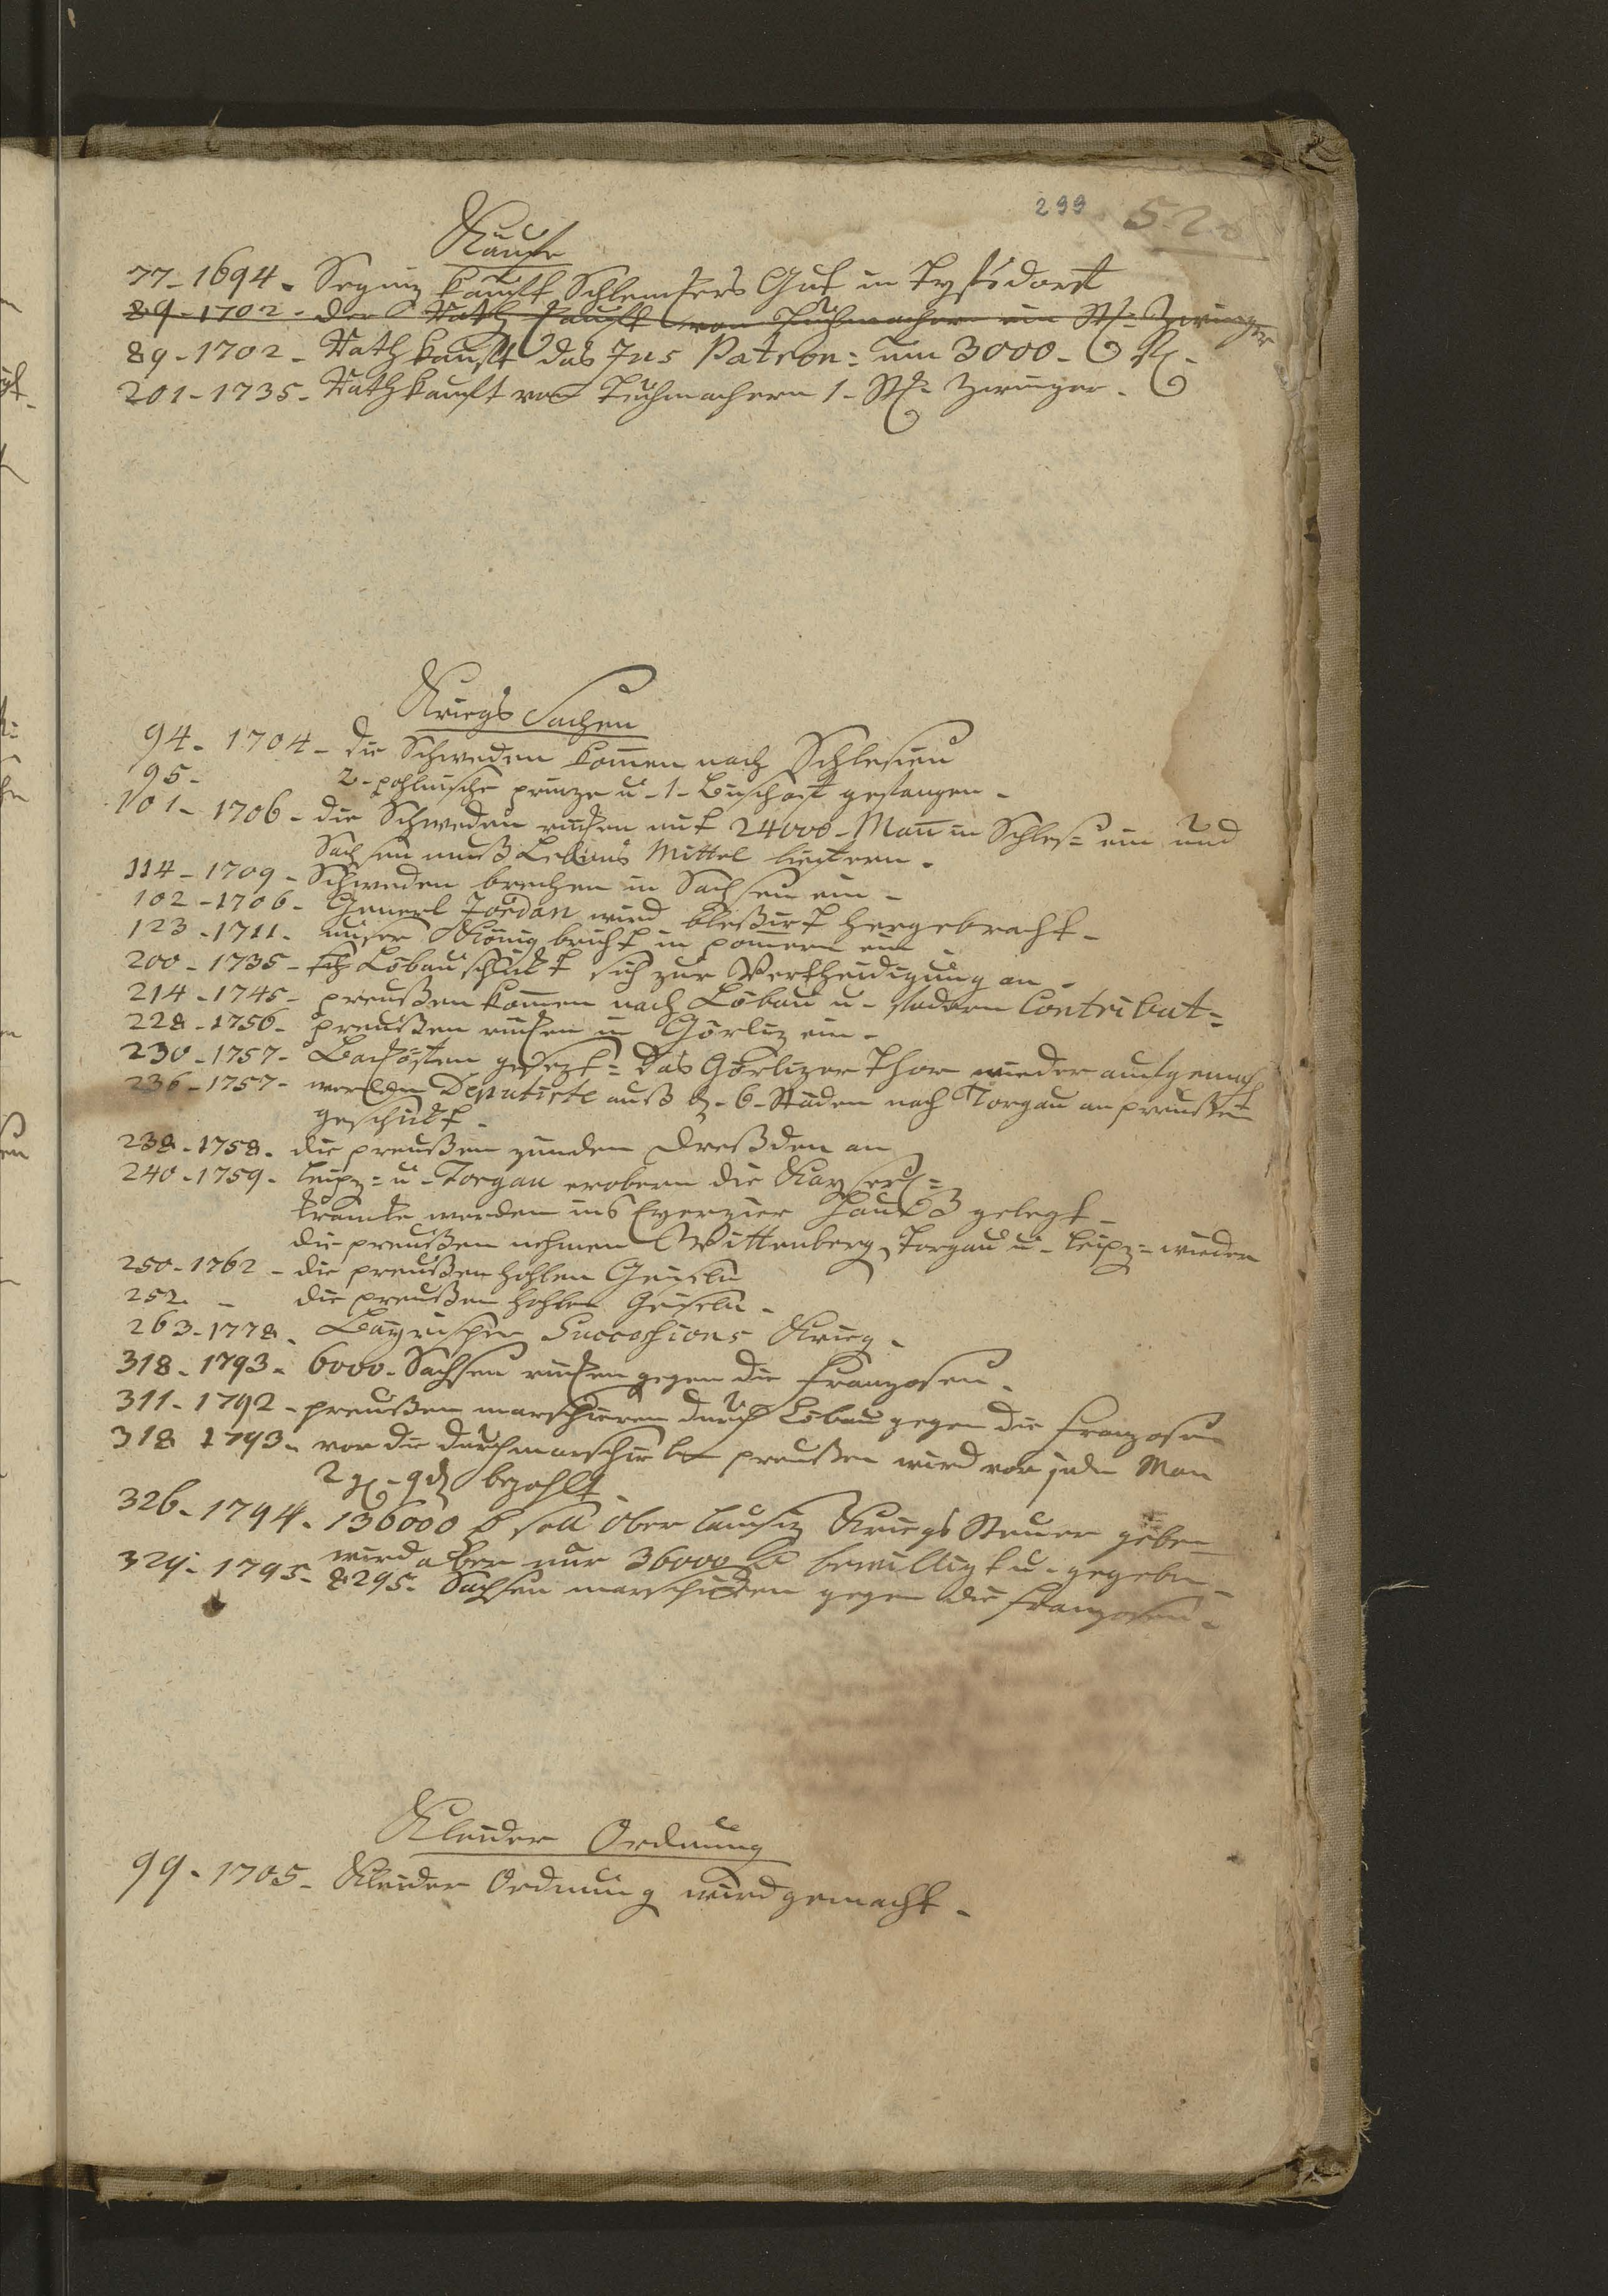 299 52
Käuffe
77-1694. Segniz kaufft Schlenkers Guth in
89-1702. der Rath kaufft von Tuchmachern ein St: Zwinger
89-1702- Rath kaufft das Jus Patron: um 3000-
201-1735- Rath kauft von Tuchmachern 1-St: Zwinger.
Kriegs Sachen
94-1704- die Schweden kom̄en nach Schlesien
95- 2-pohlnische prinze u-1-Bischoff gefangen-
101-1706- die Schweden rücken mit 24000-Man̄ in Schles= ein und
Sachsen muß Lebens Mittel liefern.
114-1709- Schweden brechen in Sachsen ein-
102-1706- Generl Jordan wird bleßirt hergebracht-
123-1711. unser König bricht in pom̄ern ein
200-1735- Löbau schickt sich zur Vertheidigung an-
214-1745- preußen kom̄en nach Löbau u- fodern Contribut=
228-1756- preußen rücken in Görliz ein-
230-1757- gesezt= das Görlizer Thor wieder aufgemach
236-1757- werden Deputirte auß d- 6-Städen nach Torgau an preußen
geschickt-
238-1758. die preußen zünden Dreßden an
240-1759- Leipz= u-Torgau erobern die Kayserl=
krancke werden ins Exerzier Hauß gelegt-
die preußen nehmen Wittenberg, Torgau u- Leipz= wieder
250-1762- die preußen hohlen Geiseln
252. - die preußen hohlen Geiseln-
263-1778. Bayrischer Successions Krieg-
318-1793- 6000-Sachsen rücken gegen die Franzosen-
311-1792- preußen marschieren durch Löbau gegen die Franzosen
318 1793- vor die durchmarschirten preußen wird vor jeden Man
2 g-9 d bezahlt
326-1794- 136000 soll Ober Lausiz Kriegs Steuer geben
wird aber nur 36000 bewilligt u-gegeben-
329-1795- 8295- Sachsen marschieren gegen die Franzosen-
Kleider Ordnung
99-1705- Kleider Ordnung wird gemacht-